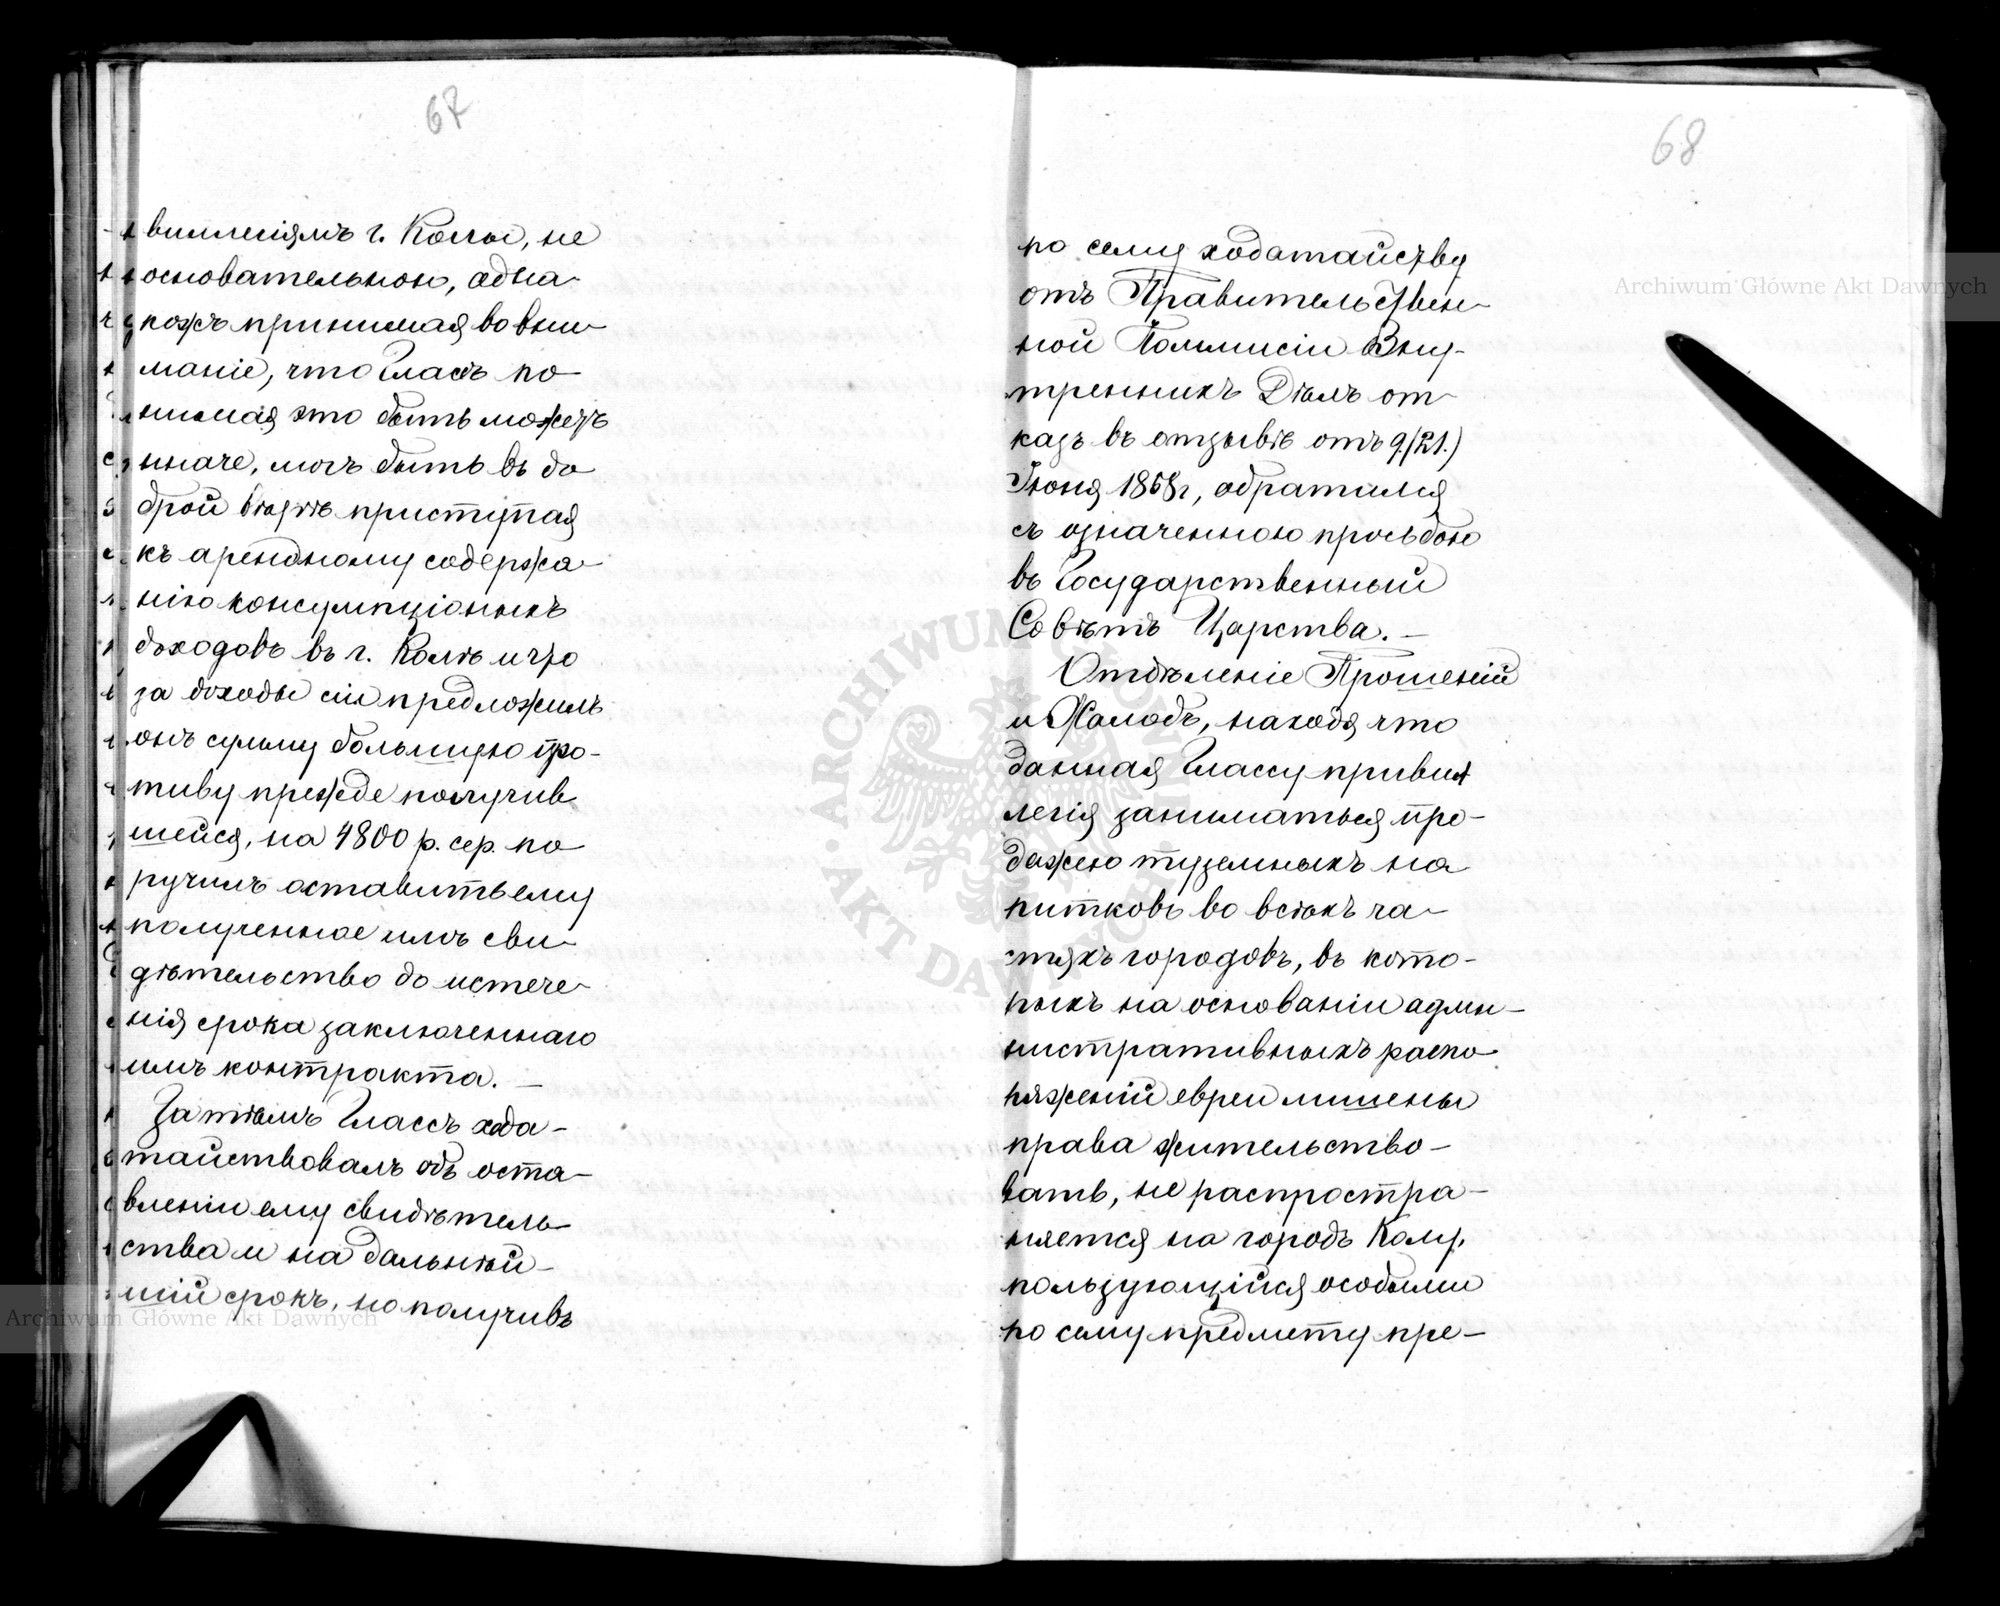 67
виллегіямъ г. Колы, не
основательною, одна-
кожъ принимая во вни-
маніе, что Глассъ по-
нимая это быть можетъ
иначе, могъ быть въ до
брой вѣрѣ приступая
къ арендному содержа-
нію консумпціоныхъ
доходовъ въ г. Колѣ и что
за доходы сіи предложилъ
онъ сумму большую про-
тиву прежде получив
шейся, на 4800 р. сер. по
ручилъ оставить ему
полученное имъ сви-
дѣтельство до истече-
нія срока заключеннаго
имъ контракта. —
Затѣмъ Глассъ хода-
тайствовалъ объ оста-
вленіи ему свидѣтель-
ства и на дальнѣй-
шій срокъ, но получивъ
68
по сему ходатайству
отъ Правительствен-
ной Коммисіи Вну-
треннихъ Дѣлъ от-
казъ въ отзывѣ отъ 9/(21.)
Іюня 1868 г, обратился
съ означенною просьбою
въ Государственный
Совѣтъ Царства. —
Отдѣленіе Прошеній
и Жалобъ, находя что
данная Глассу привил
легія заниматься про-
дажею туземныхъ на
питковъ во всѣхъ ча-
стяхъ городовъ, въ кото-
рыхъ на основаніи адми-
нистративныхъ распо-
ряженій евреи лишены
права жительство-
вать, не распростра-
няется на городъ Колу,
пользующійся особыми
по сему предмету при-
Archiwum Główne Akt Dawnych
Archiwum Główne Akt Dawnych
ARCHIWUM GŁÓWNE
AKT DAWNYCH